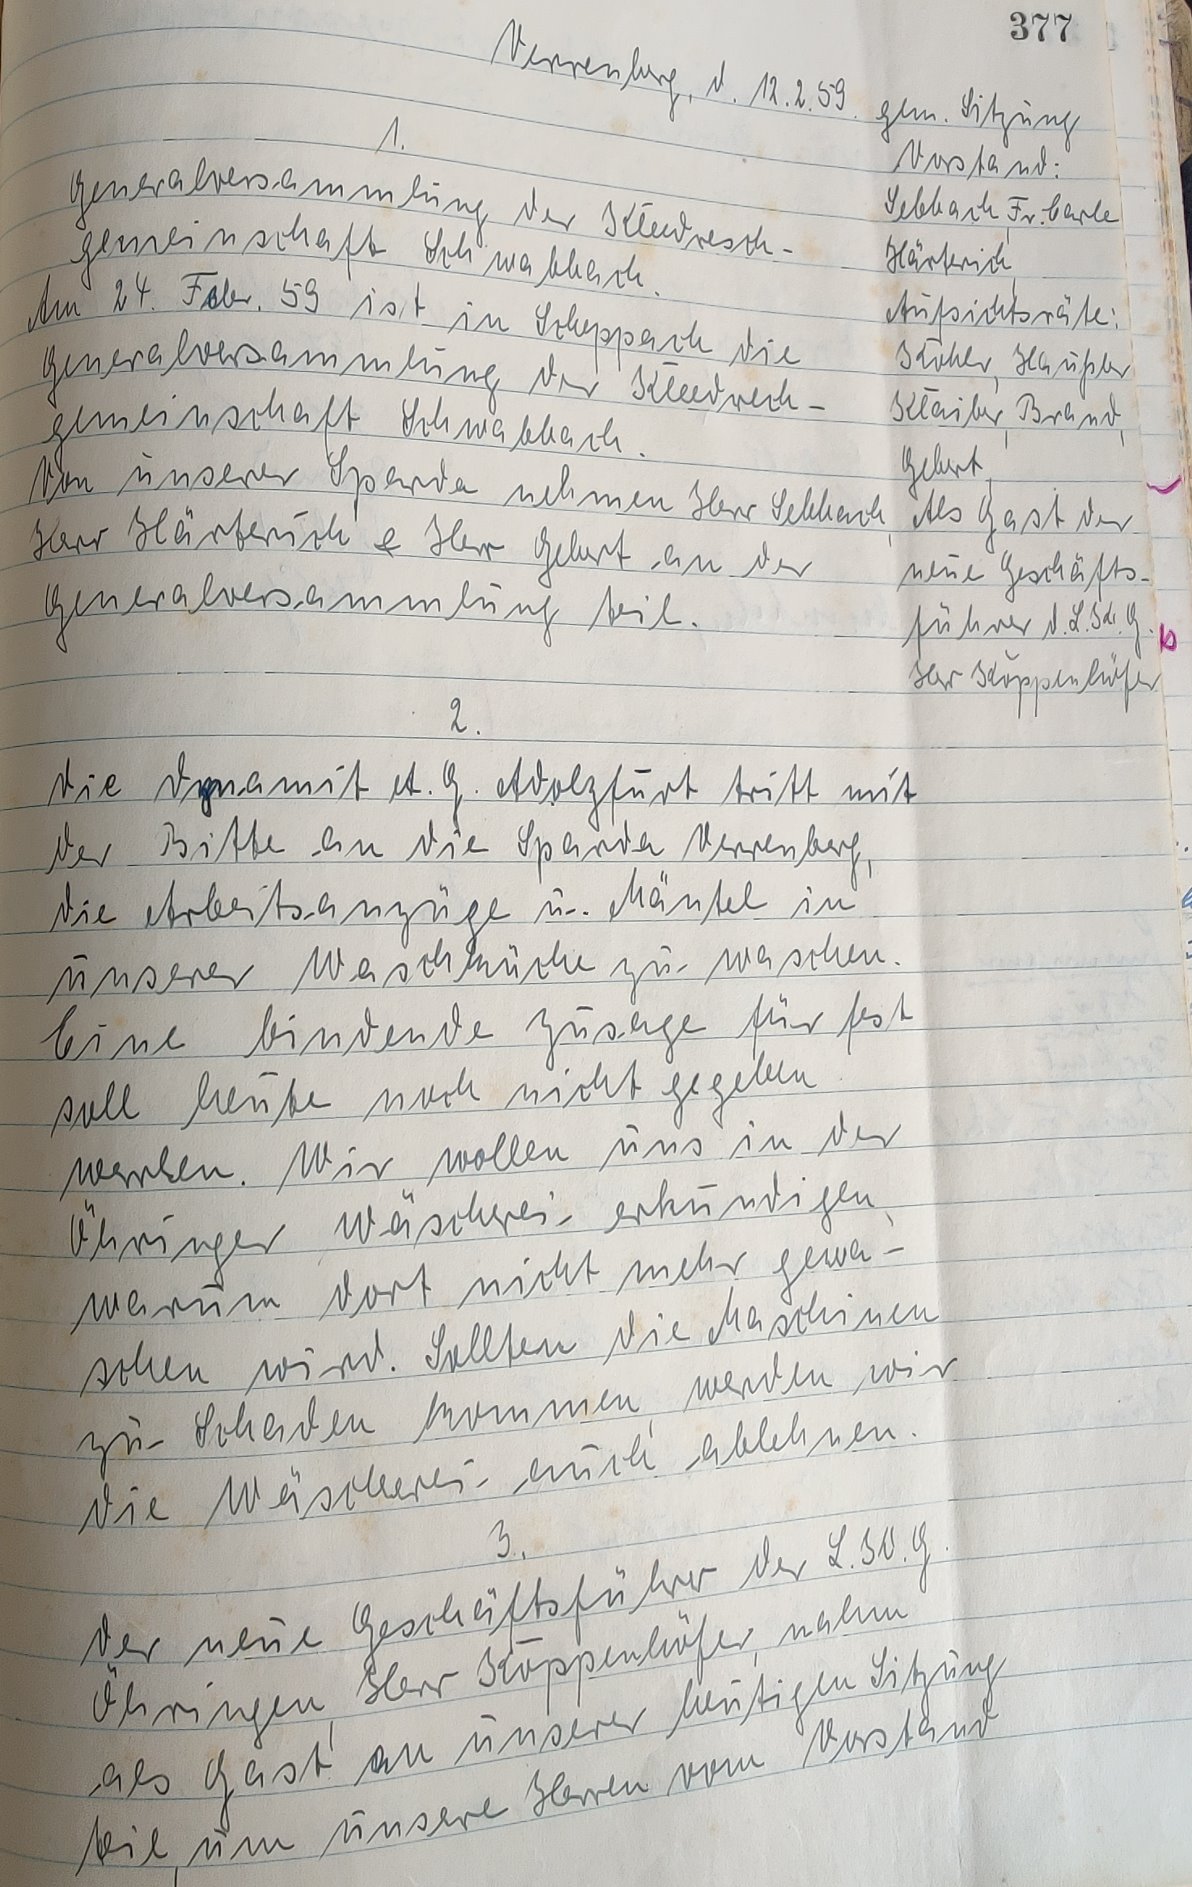 377
Verrenberg, d. 12.2.59.
gem. Sitzung
Vorstand:
Sebbach, Fr. Carle
Härterich
Aufsichtsräte:
Köhler, Haußler
Klaiber, Brand,
Gebert,
Als Gast der
neue Geschäfts-
führer d. L.W.G.
Herr Köppenhöfer
1.
Generalversammlung der Kleedresch-
gemeinschaft Schwabbach.
Am 24. Febr. 59 ist in Scheppach die
Generalversammlung der Kleedrech-
gemeinschaft Schwabbach.
Von unserer Sparda nehmen Herr Sebbach,
Herr Härterich & Herr Gebert an der
Generalversammlung teil.
2.
Die Dynamit A.G. Adolzfurt tritt mit
der Bitte an die Sparda Verrenberg,
die Arbeitsanzüge u. Mäntel in
unserer Waschküche zu waschen.
Eine bindende Zusage für fest
soll heute noch nicht gegeben
werden. Wir wollen uns in der
Öhringer Wäscherei erkundigen,
warum dort nicht mehr gewa-
schen wird. Sollten die Maschinen
zu Schaden kommen, werden wir
die Wäscherei auch ablehnen.
3.
Der neue Geschäftsführer der L.W.G.
Öhringen, Herr Köppenhöfer, nahm
als Gast an unserer heutigen Sitzung
teil, um unsere Herren vom Vorstand